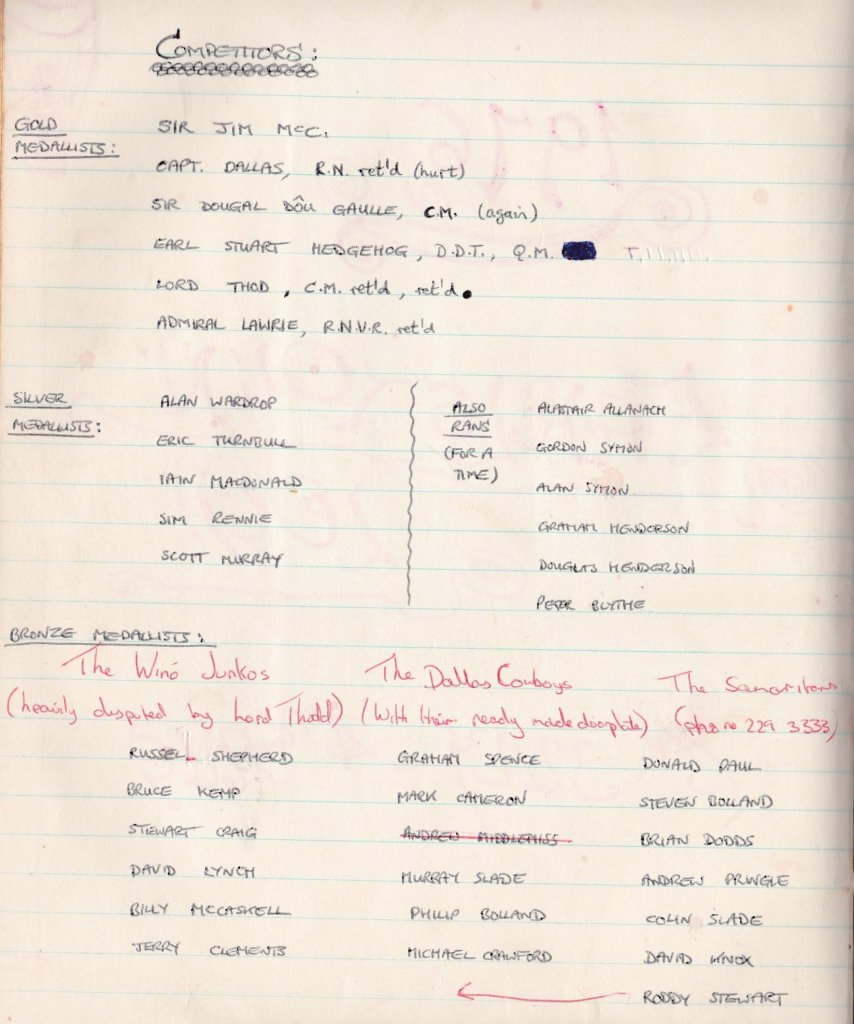 COMPETITORS:
GOLD MEDALLISTS:
SIR JIM MCC.
CAPT. DALLAS, R.N. ret'd (hurt)
SIR DOUGAL DÔU GAULLE, C.M. (again)
EARL STUART HEDGEHOG, D.D.T., Q.M.
LORD THOD, C.M. ret'd, ret'd.
ADMIRAL LAWRIE, R.N.V.R. ret'd
SILVER MEDALLISTS:
ALAN WARDROP
ERIC TURNBULL
IAIN MACDONALD
SIM RENNIE
SCOTT MURRAY
ALSO
RANS
(FOR A
TIME)
ALASTAIR ALLANACH
GORDON SYMON
ALAN SYMON
GRAHAM HENDERSON
DOUGLAS HENDERSON
PETER BLYTHE
BRONZE MEDALLISTS:
The Wino Junkos
(heavily disputed by Lord Thodd)
RUSSELL SHEPHERD
BRUCE KEMP
STEWART CRAIG
DAVID LYNCH
BILLY MCCASKELL
JERRY CLEMENTS
The Dallas Cowboys
(With their ready made)
GRAHAM SPENCE
MARK CAMERON
ANDREW MIDDLEMISS
MURRAY SLADE
PHILIP BOLLAND
MICHAEL CRAWFORD
The Samaritans
(phone 229 3333)
DONALD PAUL
STEVEN BOLLAND
BRIAN DODDS
ANDREW PRINGLE
COLIN SLADE
DAVID KNOX
RODDY STEWART